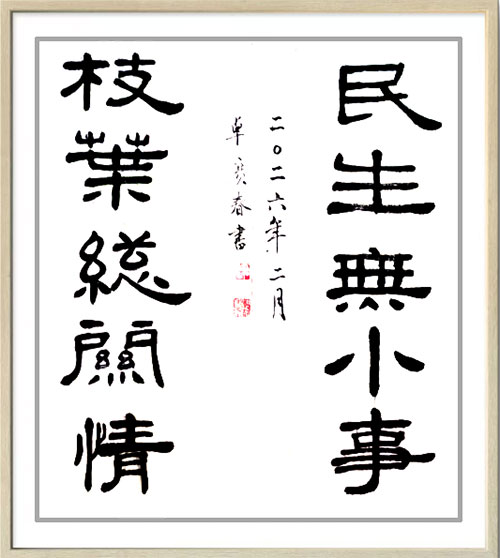 民生無小事
枝葉総關情
二〇二六年二月
卓寳春書